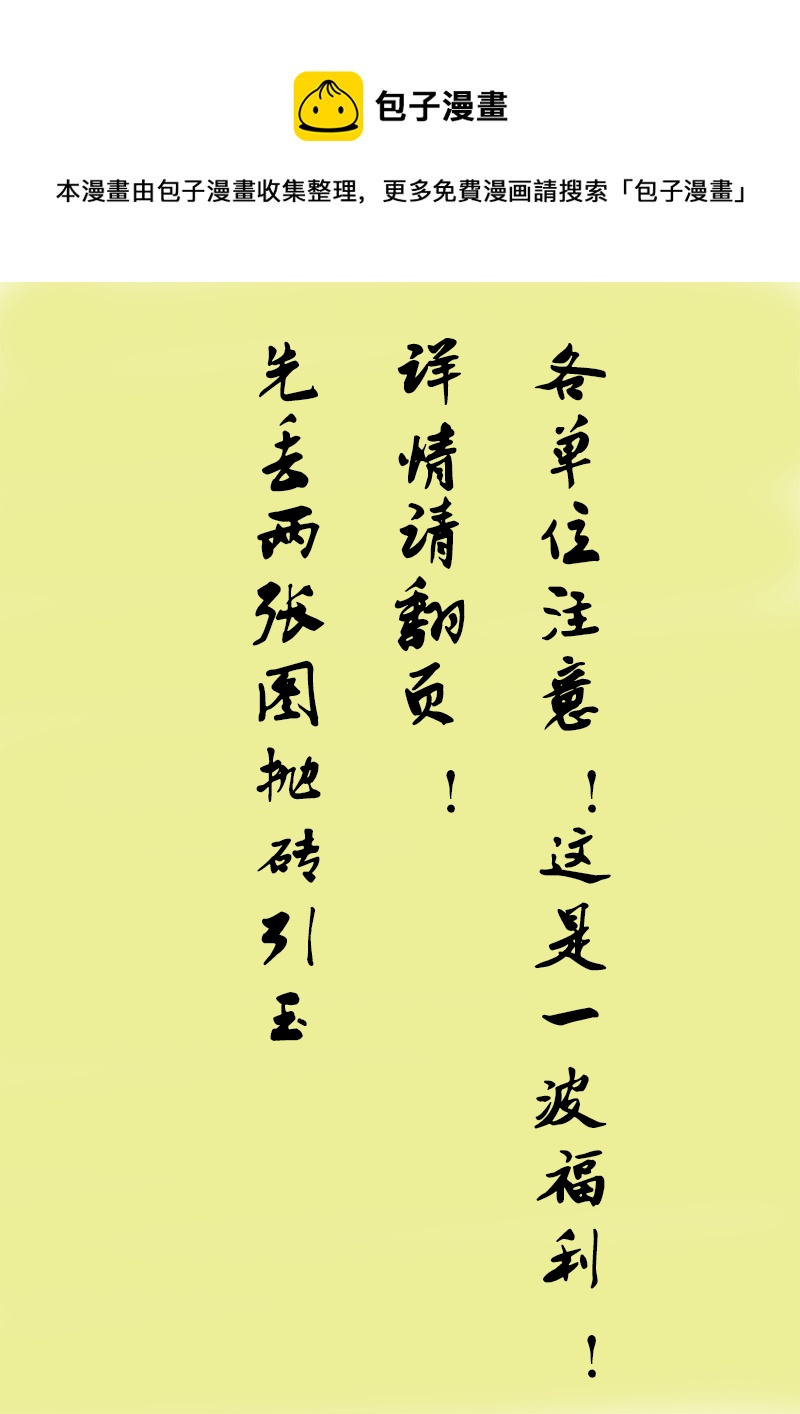 包子漫畫
本漫畫由包子漫畫收集整理，更多免費漫画請搜索「包子漫畫」
各单位注意！这是一波福利！
详情请翻页！
先丢两张图抛砖引玉